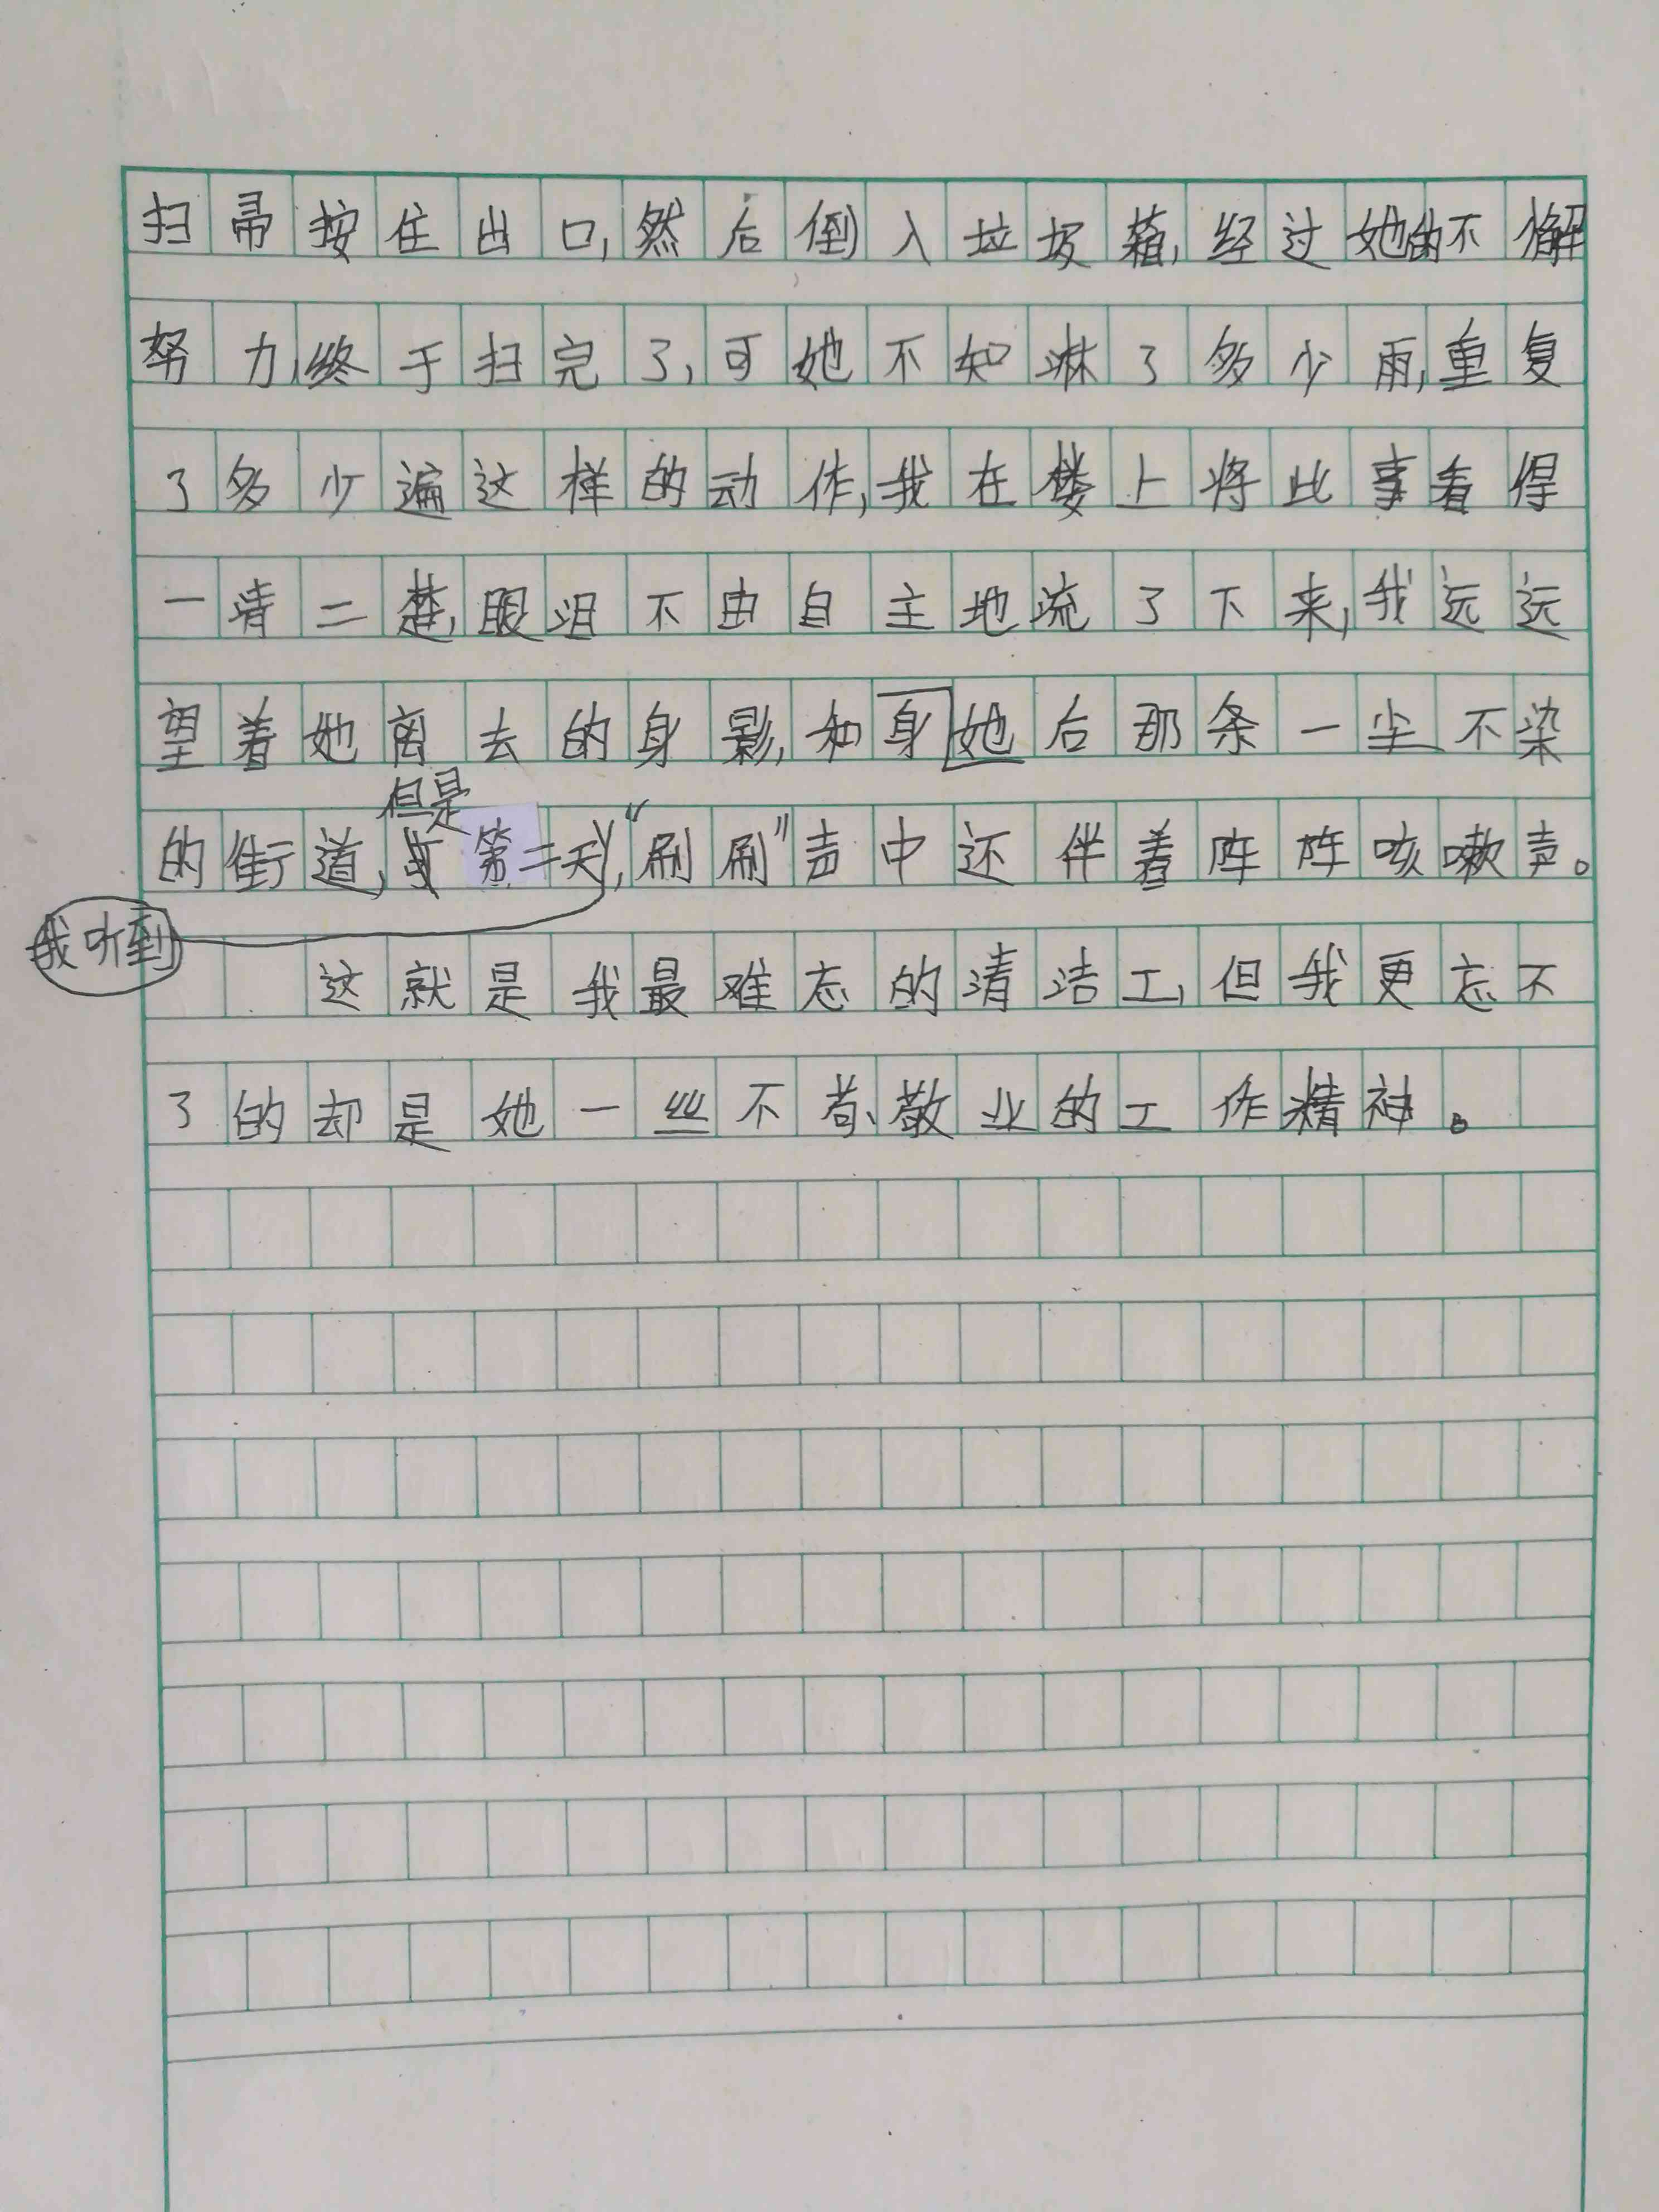 扫帚按住出口,然后倒入垃圾箱,经过她的不懈
努力,终于扫完了,可她不知淋了多少雨,重复
了多少遍这样的动作,我在楼上将此事看得
一清二楚,眼泪不由自主地流了下来,我远远
望着她离去的身影,和身她后那条一尘不染
但是
的街道,第二天,“刷刷”声中还伴着阵阵咳嗽声。
我听到
这就是我最难忘的清洁工,但我更忘不
了的却是她一丝不苟、敬业的工作精神。